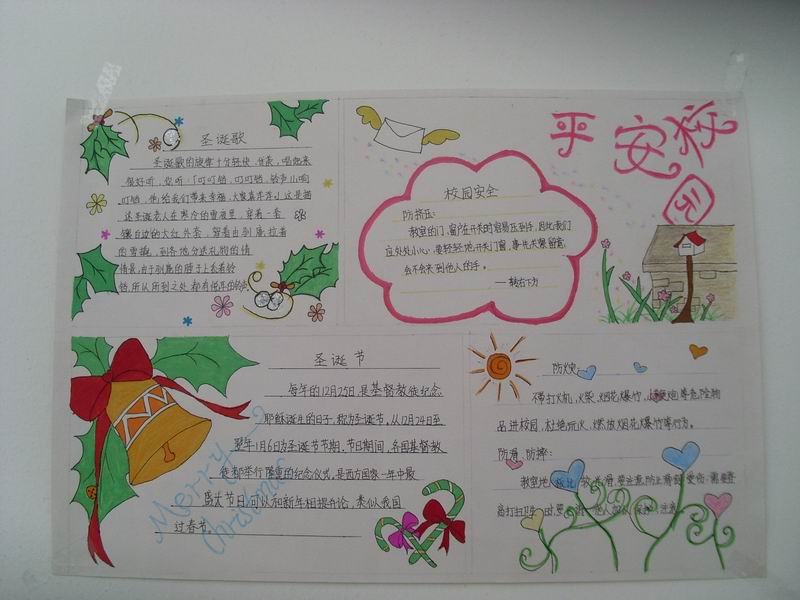 圣诞歌
圣诞歌的旋律十分轻快、优美，唱起来
很好听，您听：「叮叮噹，叮叮噹，铃声儿响
叮噹，他给我们带来幸福，大家喜洋洋」这是描
述圣诞老人在寒冷的雪夜里，穿着一套
镶白边的大红外套，驾着由驯鹿拉着
的雪橇，到各地分送礼物的情
情景，由于驯鹿的脖子上系着铃
铛，所以所到之处都有悦耳的铃声
平安校园
校园安全
防挤压：
教室的门、窗在开关时容易压到手，因此我们
应处处小心，要轻轻地开关门窗，事先关爆留意
会不会夹到他人的手。
——转右下方
圣诞节
每年的12月25日，是基督教徒纪念
耶稣诞生的日子，称为圣诞节。从12月24日至
翌年1月6日为圣诞节节期。节日期间，各国基督教
徒都举行隆重的纪念仪式。是西方国家一年中最
盛大节日，可以和新年相提并论，类似我国
过春节。
Merry
Christmas
防火：
不带打火机、火柴、烟花爆竹、等危险物
品进校园，杜绝玩火、燃放烟花爆竹等行为。
防滑、防摔：
教室地板比较光滑，要注意防止滑倒受伤；需要登
高打扫卫生